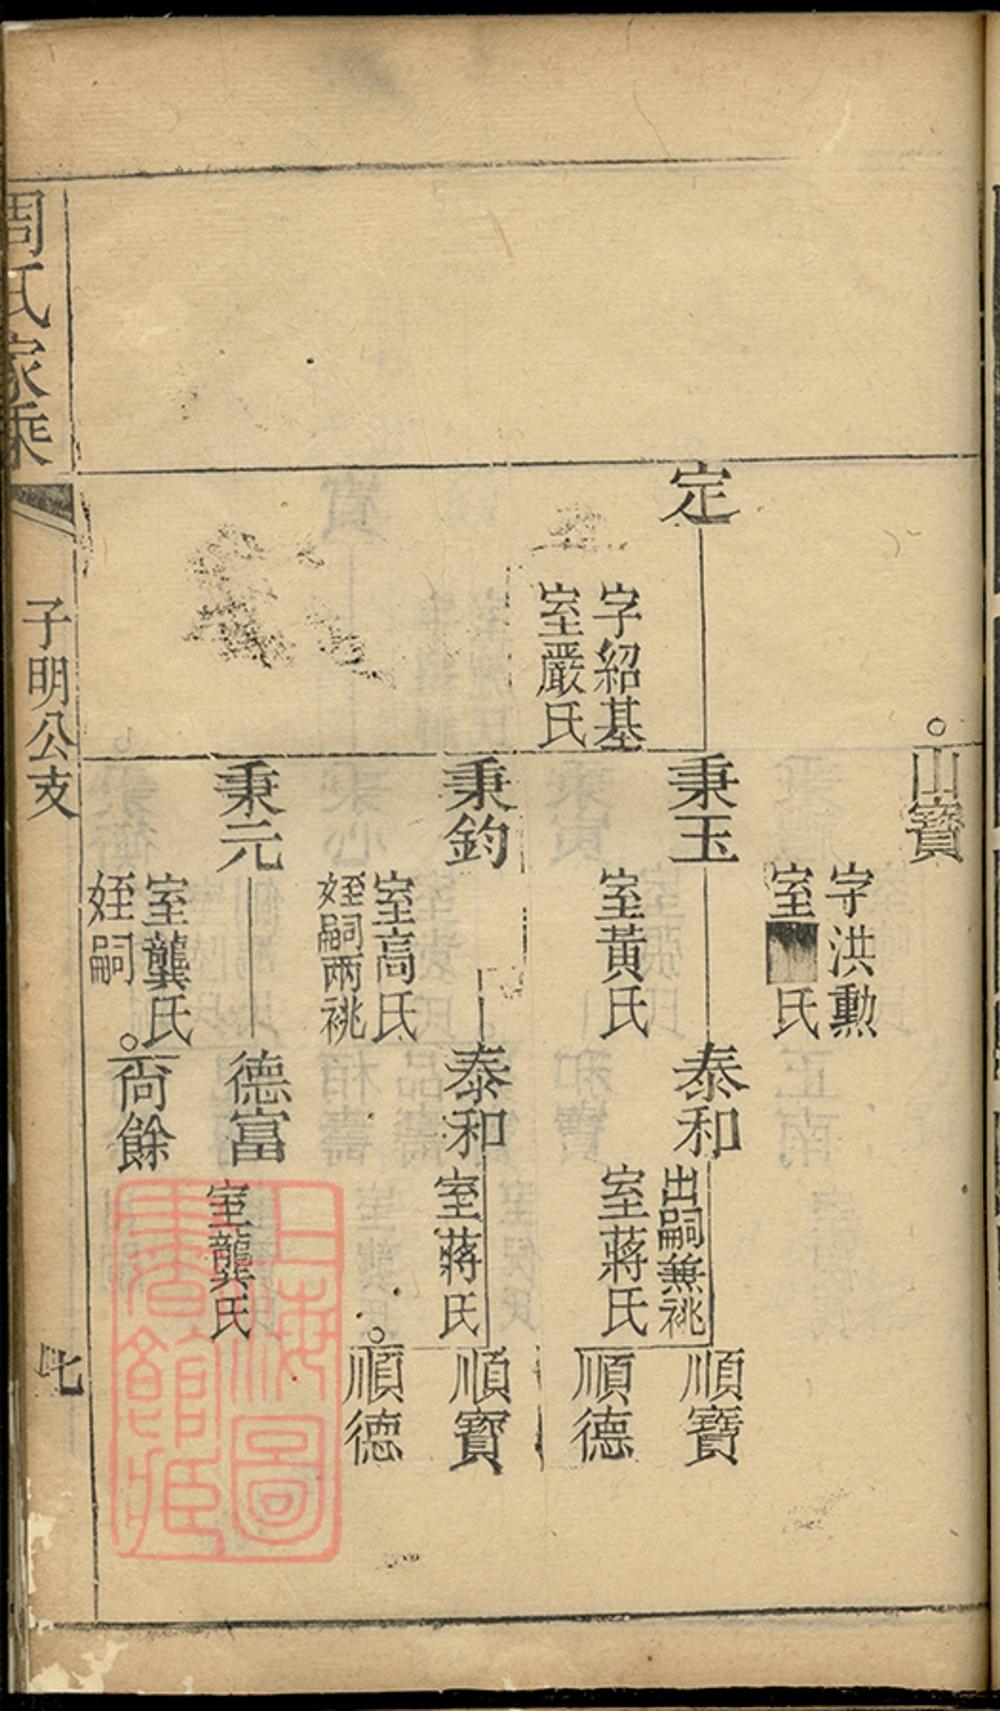 ○山寶
字洪勳
室
氏
定
字紹基
室嚴氏
秉玉
室黃氏
泰和
出嗣兼祧
室蔣氏
順寶
順德
秉鈞
室高氏
姪嗣兩祧
泰和
室蔣氏
順寶
○順德
秉元
室龔氏
姪嗣
德富
室龔氏
○尙餘
周氏家乘
子明公支
上海圖
書館藏